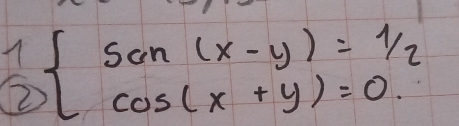 1 { san (x - y) = 1/2
② { cos(x + y) = 0.